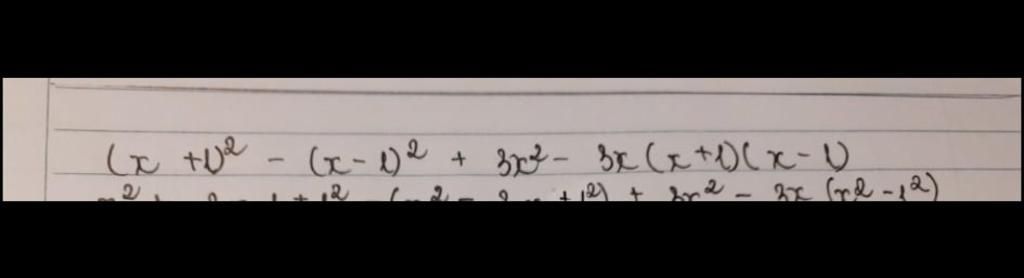 (x +1)² - (x - 1)² + 3x² - 3x (x+1)(x - 1)
+ 3x² - 3x (x² - 1²)